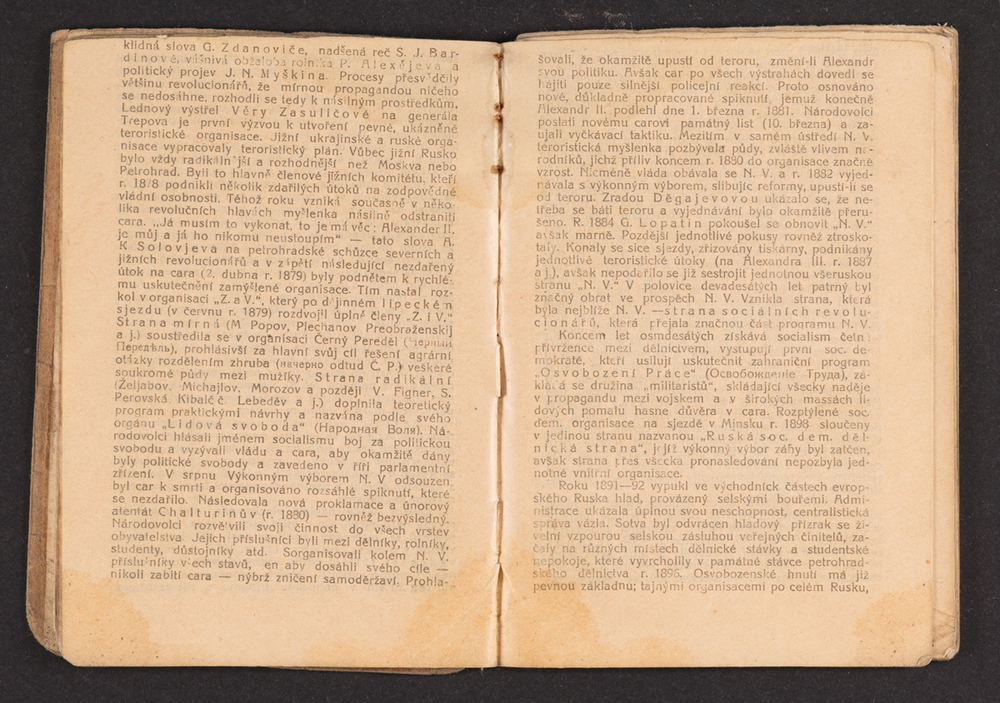 klidná slova G. Zdanoviče, nadšená reč S. J. Bar-
dinové, vášnivá obžaloba rolníka P. Alexějeva a
politický projev J. N. Myškina. Procesy přesvědčily
většinu revolucionářů, že mírnou propagandou ničeho
se nedosáhne, rozhodli se tedy k násilným prostředkům.
Lednový výstřel Věry Zasuličové na generála
Trepova je první výzvou k utvoření pevné, ukázněné
teroristické organisace. Jižní ukrajinské a ruské orga-
nisace vypracovaly teroristický plán. Vůbec jižní Rusko
bylo vždy radikálnější a rozhodnější než Moskva nebo
Petrohrad. Byli to hlavně členové jižních komitétu, kteří
r. 1878 podnikli několik zdařilých útoků na zodpovědné
vládní osobnosti. Téhož roku vzniká současně v něko-
lika revolučních hlavách myšlenka násilně odstraniti
cara. „Já musím to vykonat, to je má věc; Alexander II.
je můj a já ho nikomu neustoupím“ — tato slova A.
K Solovjeva na petrohradské schůzce severních a
jižních revolucionářů a v zápětí následující nezdařený
útok na cara (2. dubna r. 1879) byly podnětem k rychlé-
mu uskutečnění zamýšlené organisace. Tím nastal roz-
kol v organisaci „Z. a V.“, který po dějinném lipeckém
sjezdu (v červnu r. 1879) rozdvojil úplně členy „Z. i V.“
Strana mírná (M Popov, Plechanov Preobraženskij
a j.) soustředila se v organisaci Černý Pereděl (Черный
Передѣль), prohlásivší za hlavní svůj cíl řešení agrární
otázky rozdělením zhruba (начерно odtud Č. P.) veškeré
soukromé půdy mezi mužíky. Strana radikální
(Željabov, Michajlov, Morozov a později V. Figner, S.
Perovská, Kibalčč, Lebeděv a j.) doplnila teoretický
program praktickými návrhy a nazvána podle svého
orgánu „Lidová svoboda“ (Народная Воля). Ná-
rodovolci hlásali jménem socialismu boj za politickou
svobodu a vyzývali vládu a cara, aby okamžitě dány
byly politické svobody a zavedeno v říti parlamentní
zřízení. V srpnu Výkonným výborem N. V odsouzen
byl car k smrti a organisováno rozsáhlé spiknutí, které
se nezdařilo. Následovala nová proklamace a únorový
atentát Chalturinův (r. 1880) — rovněž bezvýsledný.
Národovolci rozvětvili svoji činnost do všech vrstev
obyvatelstva. Jejich příslušníci byli mezi dělníky, rolníky,
studenty, důstojníky atd. Sorganisovali kolem N. V.
příslušníky všech stavů, en aby dosáhli svého cíle —
nikoli zabití cara — nýbrž zničení samoděržaví. Prohla-
šovali, že okamžitě upustí od teroru, změní-li Alexandr
svou politiku. Avšak car po všech výstrahách dovedl se
hájiti pouze silnější policejní reakcí. Proto osnováno
nové, důkladně propracované spiknutí, jemuž konečně
Alexandr II. podlehl dne 1. března r. 1881. Národovolci
poslali novému carovi památný list (10. března) a za-
ujali vyčkávací taktiku. Mezitím v samém ústředí N. V.
teroristická myšlenka pozbývala půdy, zvláště vlivem ná-
rodníků, jichž příliv koncem r. 1880 do organisace značně
vzrost. Nicméně vláda obávala se N. V. a r. 1882 vyjed-
návala s výkonným výborem, slibujíc reformy, upustí-li se
od teroru. Zradou Děgajevovou ukázalo se, že ne-
třeba se báti teroru a vyjednávání bylo okamžitě přeru-
šeno. R. 1884 G. Lopatin pokoušel se obnovit „N. V.“
avšak marně. Pozdější jednotlivé pokusy rovněž ztrosko-
taly. Konaly se sice sjezdy, zřizovány tiskárny, podnikány
jednotlivé teroristické útoky (na Alexandra III. r. 1887
a j.), avšak nepodařilo se již sestrojit jednotnou všeruskou
stranu „N. V.“ V polovice devadesátých let patrný byl
značný obrat ve prospěch N. V. Vznikla strana, která
byla nejblíže N. V. — strana sociálních revolu-
cionářů, která přejala značnou část programu N. V.
Koncem let osmdesátých získává socialism četné
přívržence mezi dělnictvem, vystupují první soc. de-
mokraté, kteří usilují uskutečnit zahraniční program
„Osvobození Práce“ (Освобожденіе Труда), za-
kládá se družina „militaristů“, skládající všecky naděje
v propagandu mezi vojskem a v širokých massách li-
dových pomalu hasne důvěra v cara. Rozptýlené soc.
dem. organisace na sjezdě v Minsku r. 1898 sloučeny
v jedinou stranu nazvanou „Ruská soc. dem. děl-
nická strana“, jejíž výkonný výbor záhy byl zatčen,
avšak strana přes všecka pronasledování nepozbyla jed-
notné vnitřní organisace.
Roku 1891—92 vypukl ve východních částech evrop-
ského Ruska hlad, provázený selskými bouřemi. Admi-
nistrace ukázala úplnou svou neschopnost, centralistická
správa vázla. Sotva byl odvrácen hladový přízrak se ži-
velní vzpourou selskou zásluhou veřejných činitelů, za-
čaly na různých místech dělnické stávky a studentské
nepokoje, které vyvrcholily v památné stávce petrohrad-
ského dělnictva r. 1896. Osvobozenské hnutí má již
pevnou základnu; tajnými organisacemi po celém Rusku,